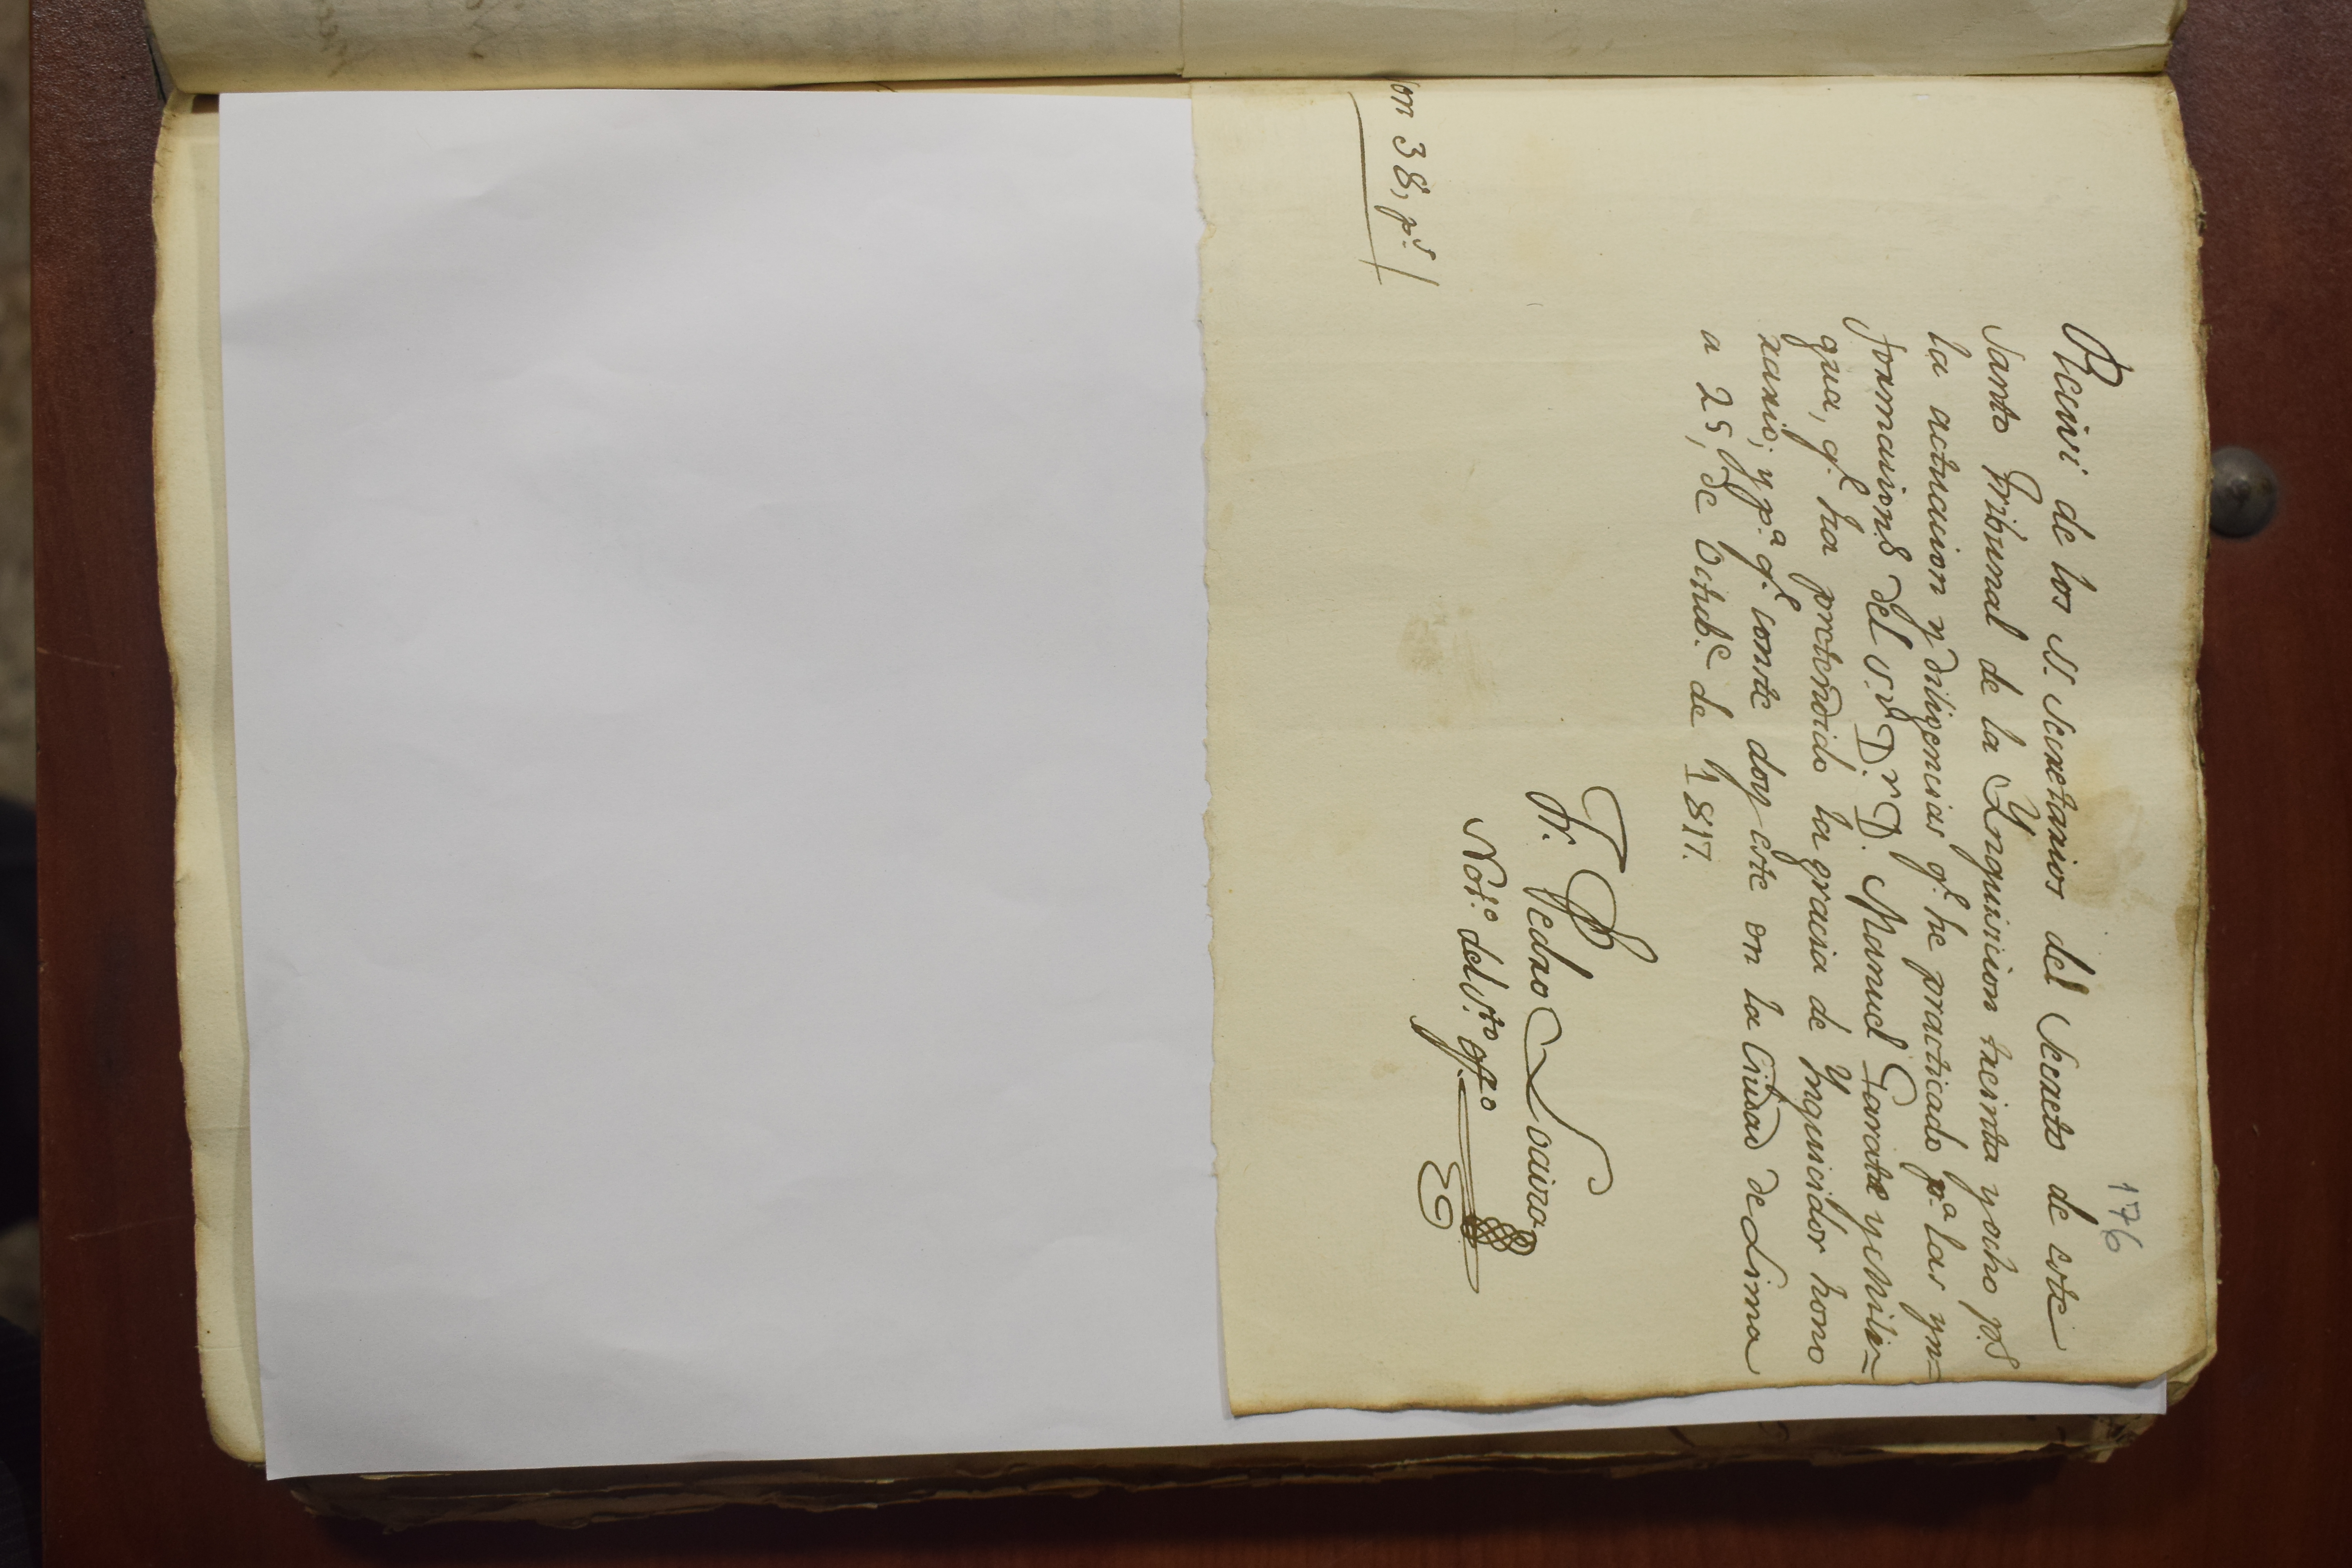 176
Recivi de los SS. Secretarios del Secreto de este
Santo Tribunal de la Ynquisicion treinta y ocho ps.
la actuacion y diligencias q.e he practicado p.a las yn=
formacion.s del S.or D.r D. Manuel Garate y
gua, q.e ha pretendido la gracia de Ynquicidor hono
rario; y p.a q.e conste doy este en la Ciudad de Lima
a 25, de Octub.e de 1817.
Fr. Pedro Loaira
Not.o del S.to off.o
on 38, p.s